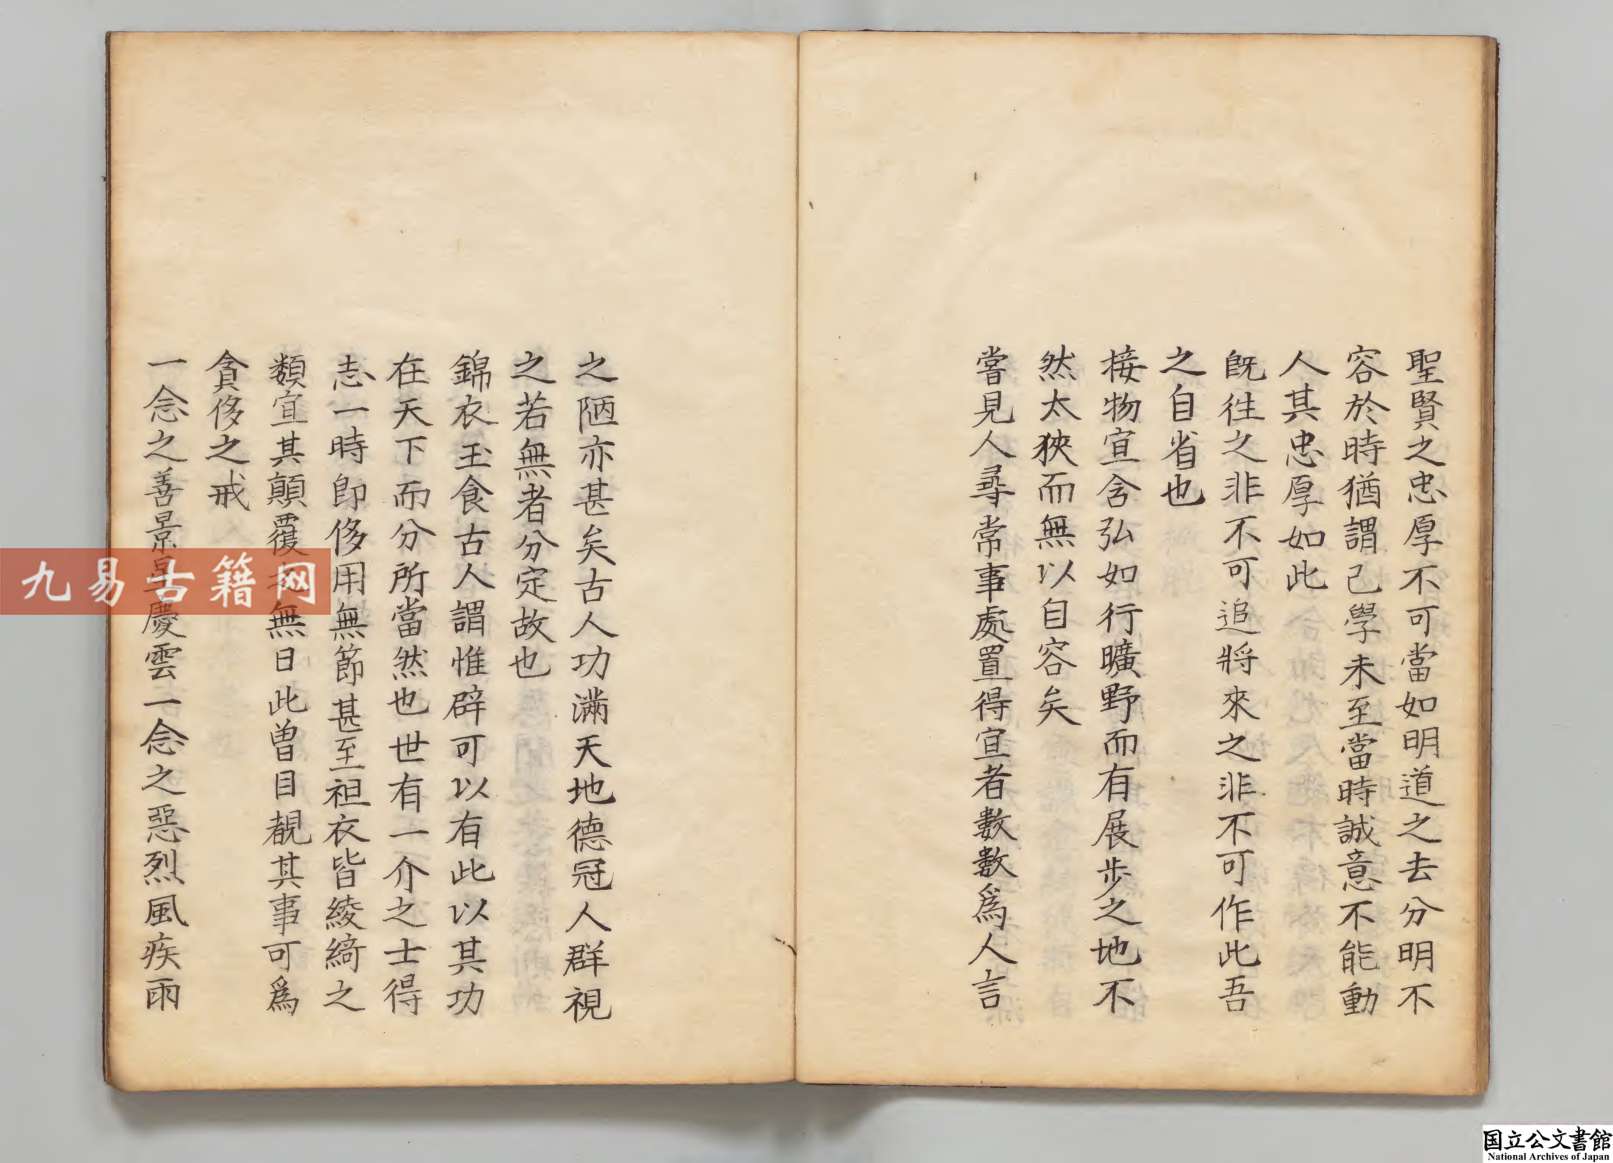 聖賢之忠厚不可當如明道之去分明不
容於時猶謂己學未至當時誠意不能動
人其忠厚如此
既往之非不可追將來之非不可作此吾
之自省也
接物宜含弘如行曠野而有展步之地不
然太狹而無以自容矣
嘗見人尋常事處置得宜者數數爲人言
之陋亦甚矣古人功滿天地德冠人群視
之若無者分定故也
錦衣玉食古人謂惟辟可以有此以其功
在天下而分所當然也世有一介之士得
志一時即侈用無節甚至袒衣皆綾綺之
類宜其顛覆無日此曽目覩其事可爲
貪侈之戒
一念之善景慶雲一念之惡烈風疾雨
九易古籍网
国立公文書館
National Archives of Japan